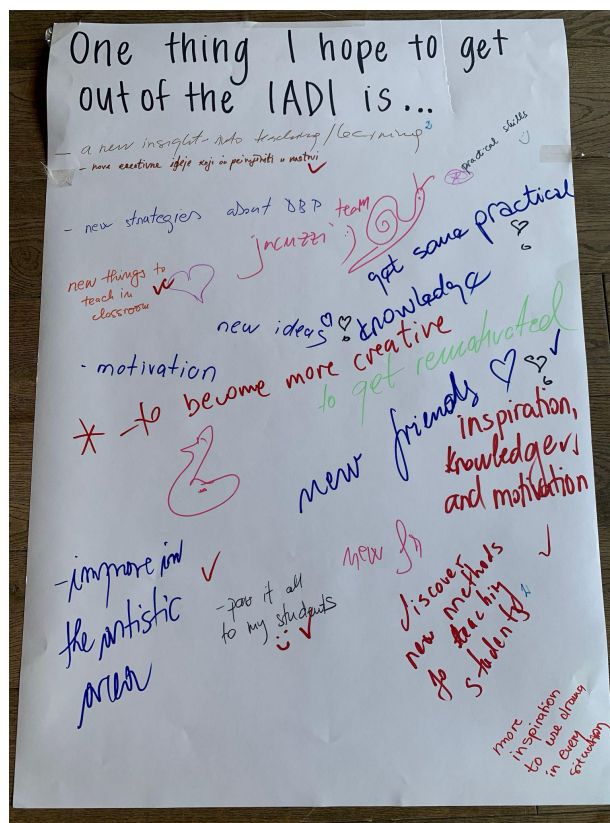 One thing I hope to get
out of the IADI is...
- a new insight into teaching/learning
- nove kreativne ideje koji ću primjeniti u nastavi
practical skills
- new strategies about DBP
jacuzzi team
:)
get some practical
knowledge
new things to
teach in
classroom
new ideas
- motivation
* - to become more creative
to get remotivated
new friends
inspiration,
knowledgers
and motivation
- improve in
the artistic
area
- pass it all
to my students
new
discover
new methods
to teaching
students
more
inspiration
to use drama
in every
situation